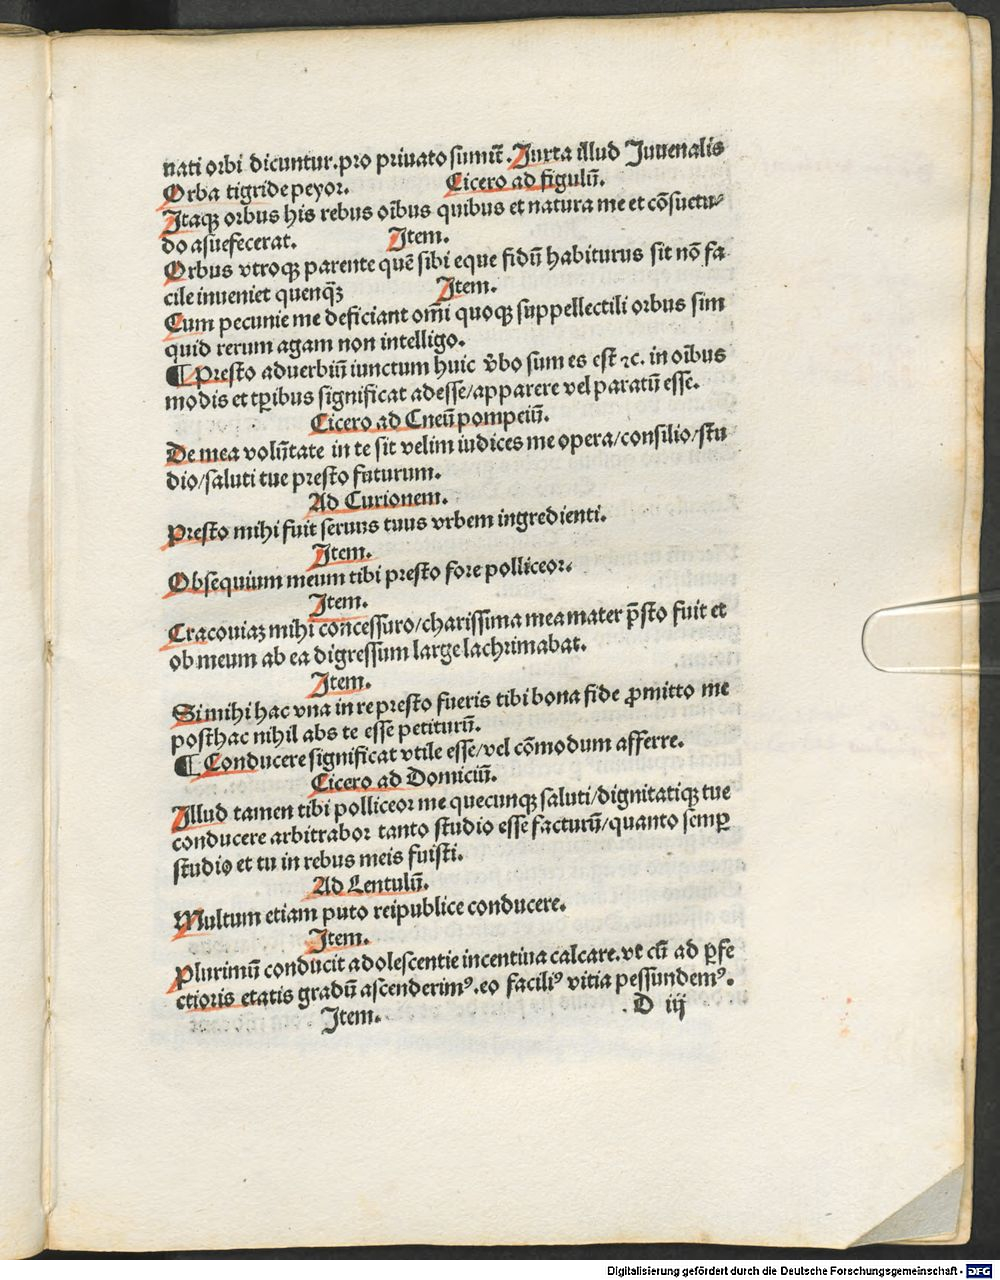 nati orbi dicuntur.pro priuato sumūt̄.Juxta illud Juuenalis
Orba tigride peyor. Cicero ad figulū.
Itaqꝫ orbus his rebus oībus quibus et natura me et cōsuetu⸗
do asuefecerat. Item.
Orbus vtroqꝫ parente quē sibi eque fidū habiturus sit nō fa
cile inueniet quenq̄ꝫ Item.
Cum pecunie me deficiant om̄i quoqꝫ suppellectili orbus sim
quid rerum agam non intelligo.
¶ Presto aduerbiū iunctum huic v̄bo sum es est ⁊c. in oībus
modis et tꝑibus significat adesse/apparere vel paratū esse.
Cicero ad Cneū pompeiū.
De mea volūtate in te sit velim iudices me opera/consilio/stu
dio/saluti tue presto futurum.
Ad Curionem.
Presto mihi fuit seruus tuus vrbem ingredienti.
Item.
Obsequium meum tibi presto fore polliceor.
Item.
Cracouiaꝫ mihi concessuro/charissima mea mater p̄sto fuit et
ob meum ab ea digressum large lachrimabat.
Item.
Si mihi hac vna in re presto fueris tibi bona fide ꝓmitto me
posthac nihil abs te esse petiturū.
¶ Conducere significat vtile esse/vel cōmodum afferre.
Cicero ad Domiciū.
Illud tamen tibi polliceor me quecunqꝫ saluti/dignitatiqꝫ tue
conducere arbitrabor tanto studio esse facturū/quanto semꝑ
studio et tu in rebus meis fuisti.
Ad Lentulū.
Multum etiam puto reipublice conducere.
Item.
Plurimū conducit adolescentie incentiua calcare.vt cū ad ꝑfe
ctioris etatis gradū ascenderimꝰ.eo faciliꝰ vitia pessundemꝰ.
Item. . D iij
Digitalisierung gefördert durch die Deutsche Forschungsgemeinschaft - DFG